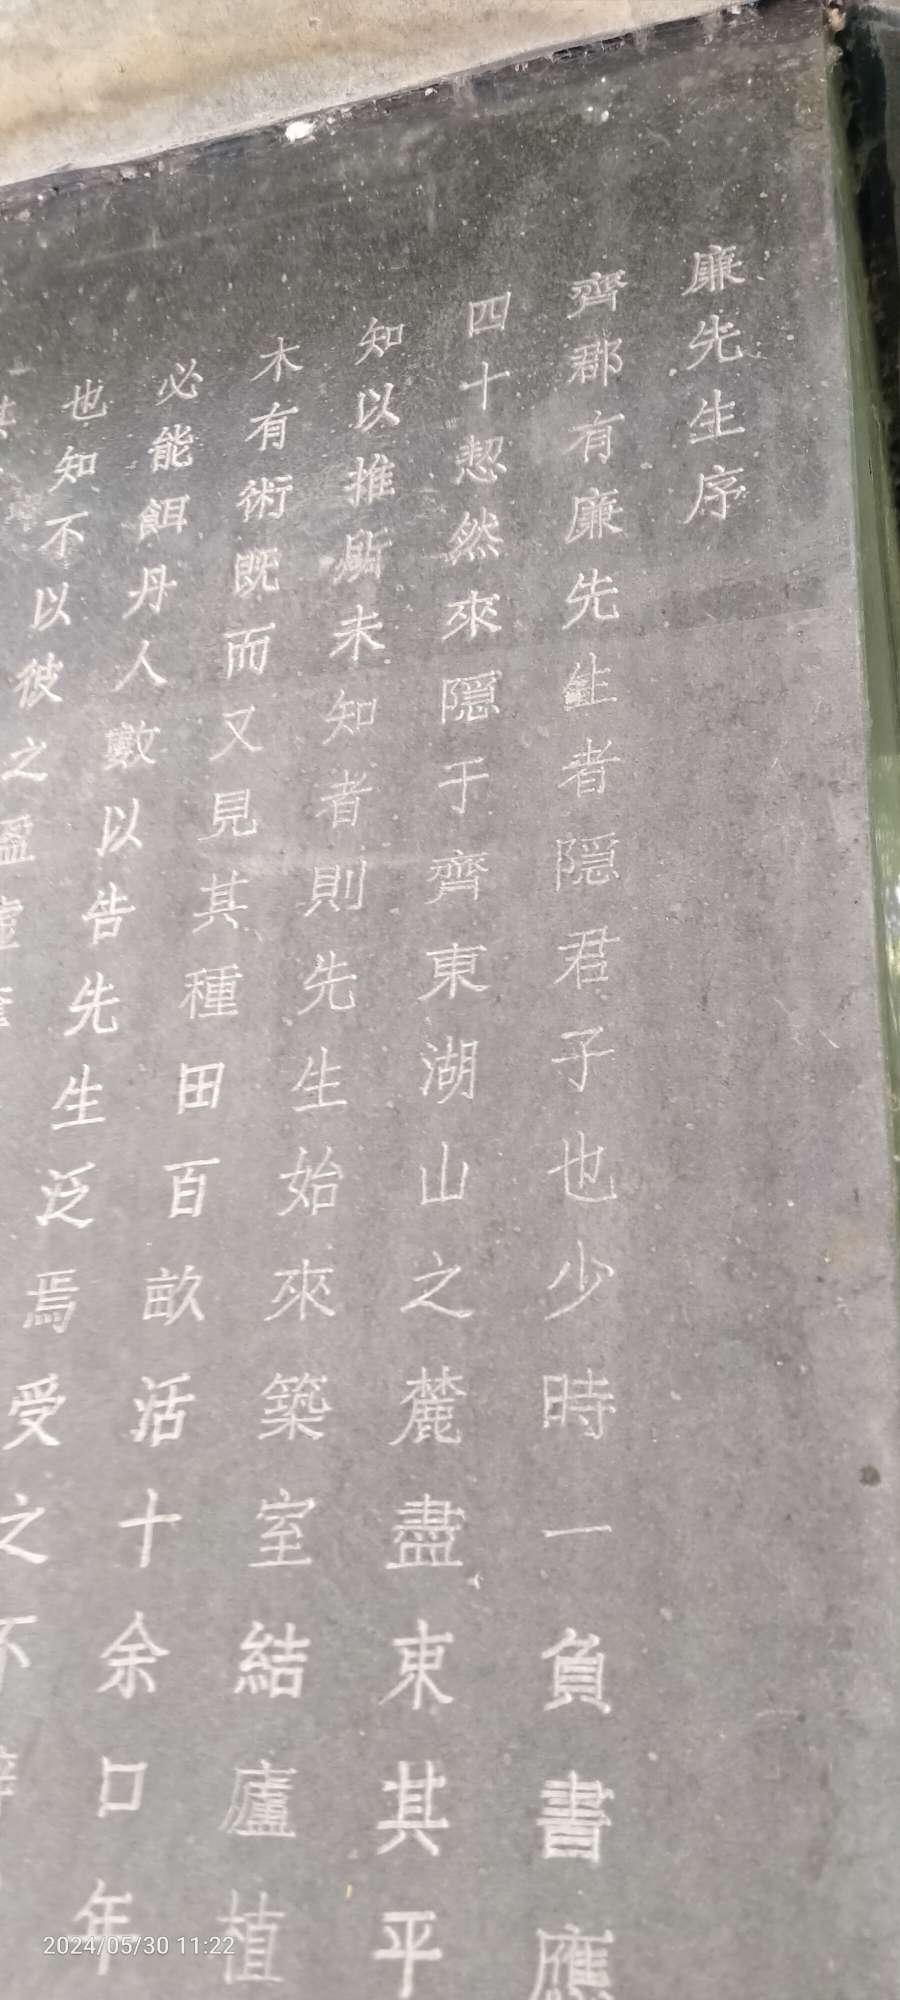 廉先生序
齊郡有廉先生者隠君子也少時一負書應
四十恝然來隠于齊東湖山之麓盡東其平
知以推所未知者則先生始來築室結廬植
木有術既而又見其種田百畝活十余口年
必能餌丹人數以告先生泛焉受之
也知不以彼之盈虛
2024/05/30 11:22